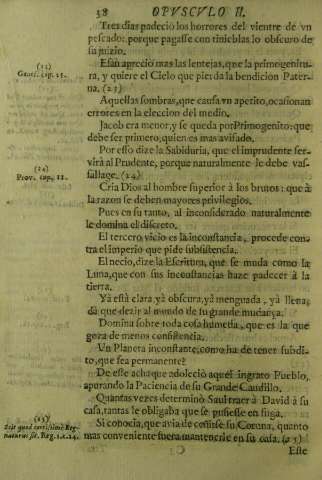 38 OPUSCULO II.
Tres dias padeciò los horrores del vientre de vn
pescado: porque pagasse con tinieblas lo obscuro de
su juizio.
Esaù apreciò mas las lentejas, que la primogenitu-
(23)
Genes. cap. 25.
ra, y quiere el Cielo que pierda la bendicion Pater-
na. (23)
Aquellas sombras, que causa vn apetito, ocasionan
errores en la eleccion del medio.
Jacob era menor, y se queda por Primogenito: que
debe ser primero, quien es mas avisado.
Por esso dize la Sabiduria, que el imprudente ser-
virà al Prudente, porque naturalmente le debe vas-
(24)
Prov. cap. 11.
sallage. (24)
Cria Dios al hombre superior à los brutos: que à
la razon se deben mayores privilegios.
Pues en su tanto, al inconsiderado naturalmente
le domina el discreto.
El tercero vicio es la inconstancia, procede con-
tra el imperio que pide subsistencia.
El necio, dize la Escritura, que se muda como la
Luna, que con sus inconstancias haze padecer à la
tierra.
Yà està clara, yà obscura, yà menguada, yà llena,
dà que dezir al mundo de su grande mudança.
Domina sobre toda cosa humeda, que es la que
goza de menos consistencia.
Un Planeta inconstante, como ha de tener subdi-
to, que sea permanente?
De este achaque adoleciò aquel ingrato Pueblo,
apurando la Paciencia de su Grande Caudillo.
Quantas vezes determinò Saul traer à David à su
casa, tantas le obligaba que se pusiesse en fuga.
(25)
Scit quod certissimè Reg-
naturus sit. Reg. 1. c. 24.
Si conocia, que avia de ceñirse su Corona, quanto
mas conveniente fuera mantenerle en su casa. (25)
Este